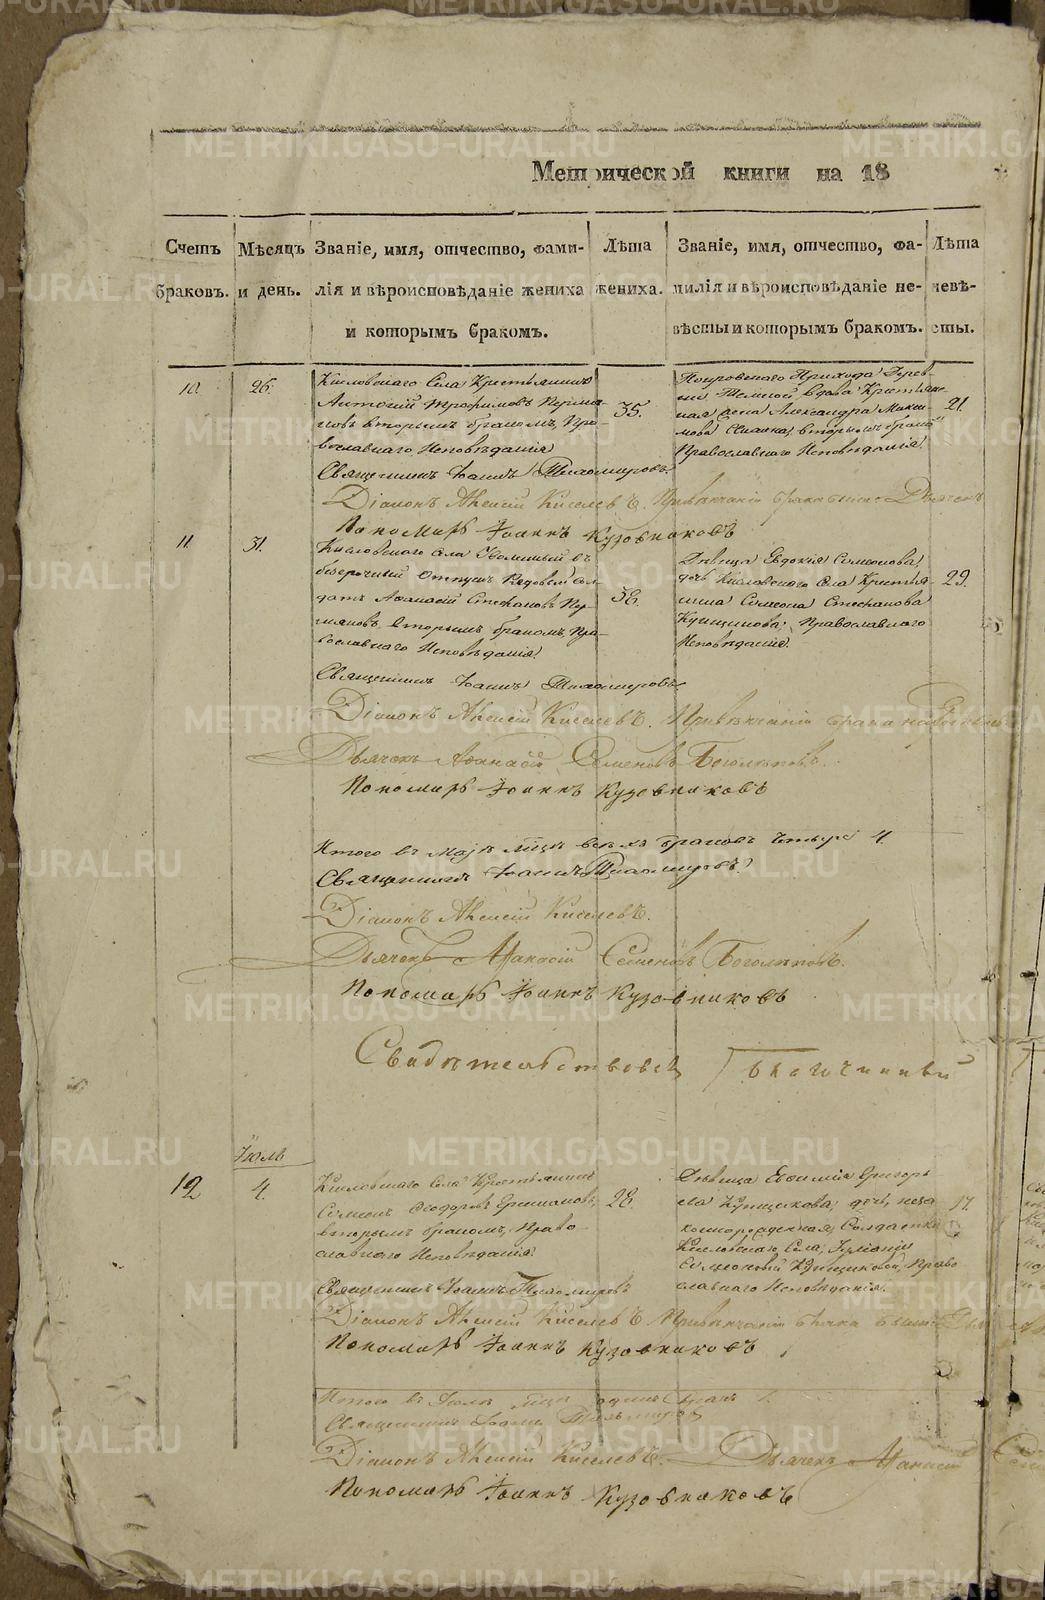 Метрической книги на 18
Счетъ браковъ.
Мѣсяцъ и день.
Званіе, имя, отчество, фамилія и вѣроисповѣданіе жениха и которымъ бракомъ.
Лѣта жениха.
Званіе, имя, отчество, фамилія и вѣроисповѣданіе невѣсты и которымъ бракомъ.
Лѣта невѣсты.
10.
26.
Кисловскаго Села Крестьянинъ
Антоній Трофимовъ
вторымъ бракомъ, Пра-
вославнаго Исповѣданія
35.
Покровскаго Прихода Дерев-
ни Темной Вдова Крестьян-
ская жена Александра Макси-
мова вторымъ бракомъ
Православнаго Исповѣданія.
21.
Священникъ Іоаннъ Тихомировъ.
Діаконъ Алексій Киселевъ.
Пономарь Іоаннъ Кузовниковъ
11.
31.
Кисловскаго Села Уволенный въ
безсрочный Отпускъ Рядовой Сол-
датъ Афанасій Стефановъ Пер-
мяковъ вторымъ бракомъ, Пра-
вославнаго Исповѣданія.
38.
Дѣвица Евдокія Симеонова
дочь Кисловскаго Села Крестья-
нина Симеона Стефанова
Кунщикова, Православнаго
Исповѣданія.
29.
Священникъ Іоаннъ Тихомировъ
Діаконъ Алексій Киселевъ. При вѣнчаніи брака
Дьячекъ Афанасій Семеновъ Боголѣповъ.
Пономарь Іоаннъ Кузовниковъ
Итого въ Маѣ мѣсяцѣ всѣхъ браковъ четыре 4.
Священникъ Іоаннъ Тихомировъ.
Діаконъ Алексій Киселевъ.
Дьячекъ Афанасій Семеновъ Боголѣповъ.
Пономарь Іоаннъ Кузовниковъ
Свидѣтельствовалъ Благочинный
Іюль
12
4.
Кисловскаго Села Крестьянинъ
Симеонъ Ѳеодоровъ
вторымъ бракомъ, Право-
славнаго Исповѣданія.
28.
Дѣвица Евфимія Григорь-
ева Кунщикова, дочь
Солдатки
Кисловскаго Села, Іуліаніи
Симеоновой Кунщиковой, Право-
славнаго Исповѣданія.
17.
Священникъ Іоаннъ Тихомировъ
Діаконъ Алексій Киселевъ При вѣнчаніи брака
Пономарь Іоаннъ Кузовниковъ
Итого въ Іюлѣ мѣсяцѣ одинъ бракъ 1.
Священникъ Іоаннъ Тихомировъ
Діаконъ Алексій Киселевъ. Дьячекъ Афанасій
Пономарь Іоаннъ Кузовниковъ
METRIKI.GASO-URAL.RU